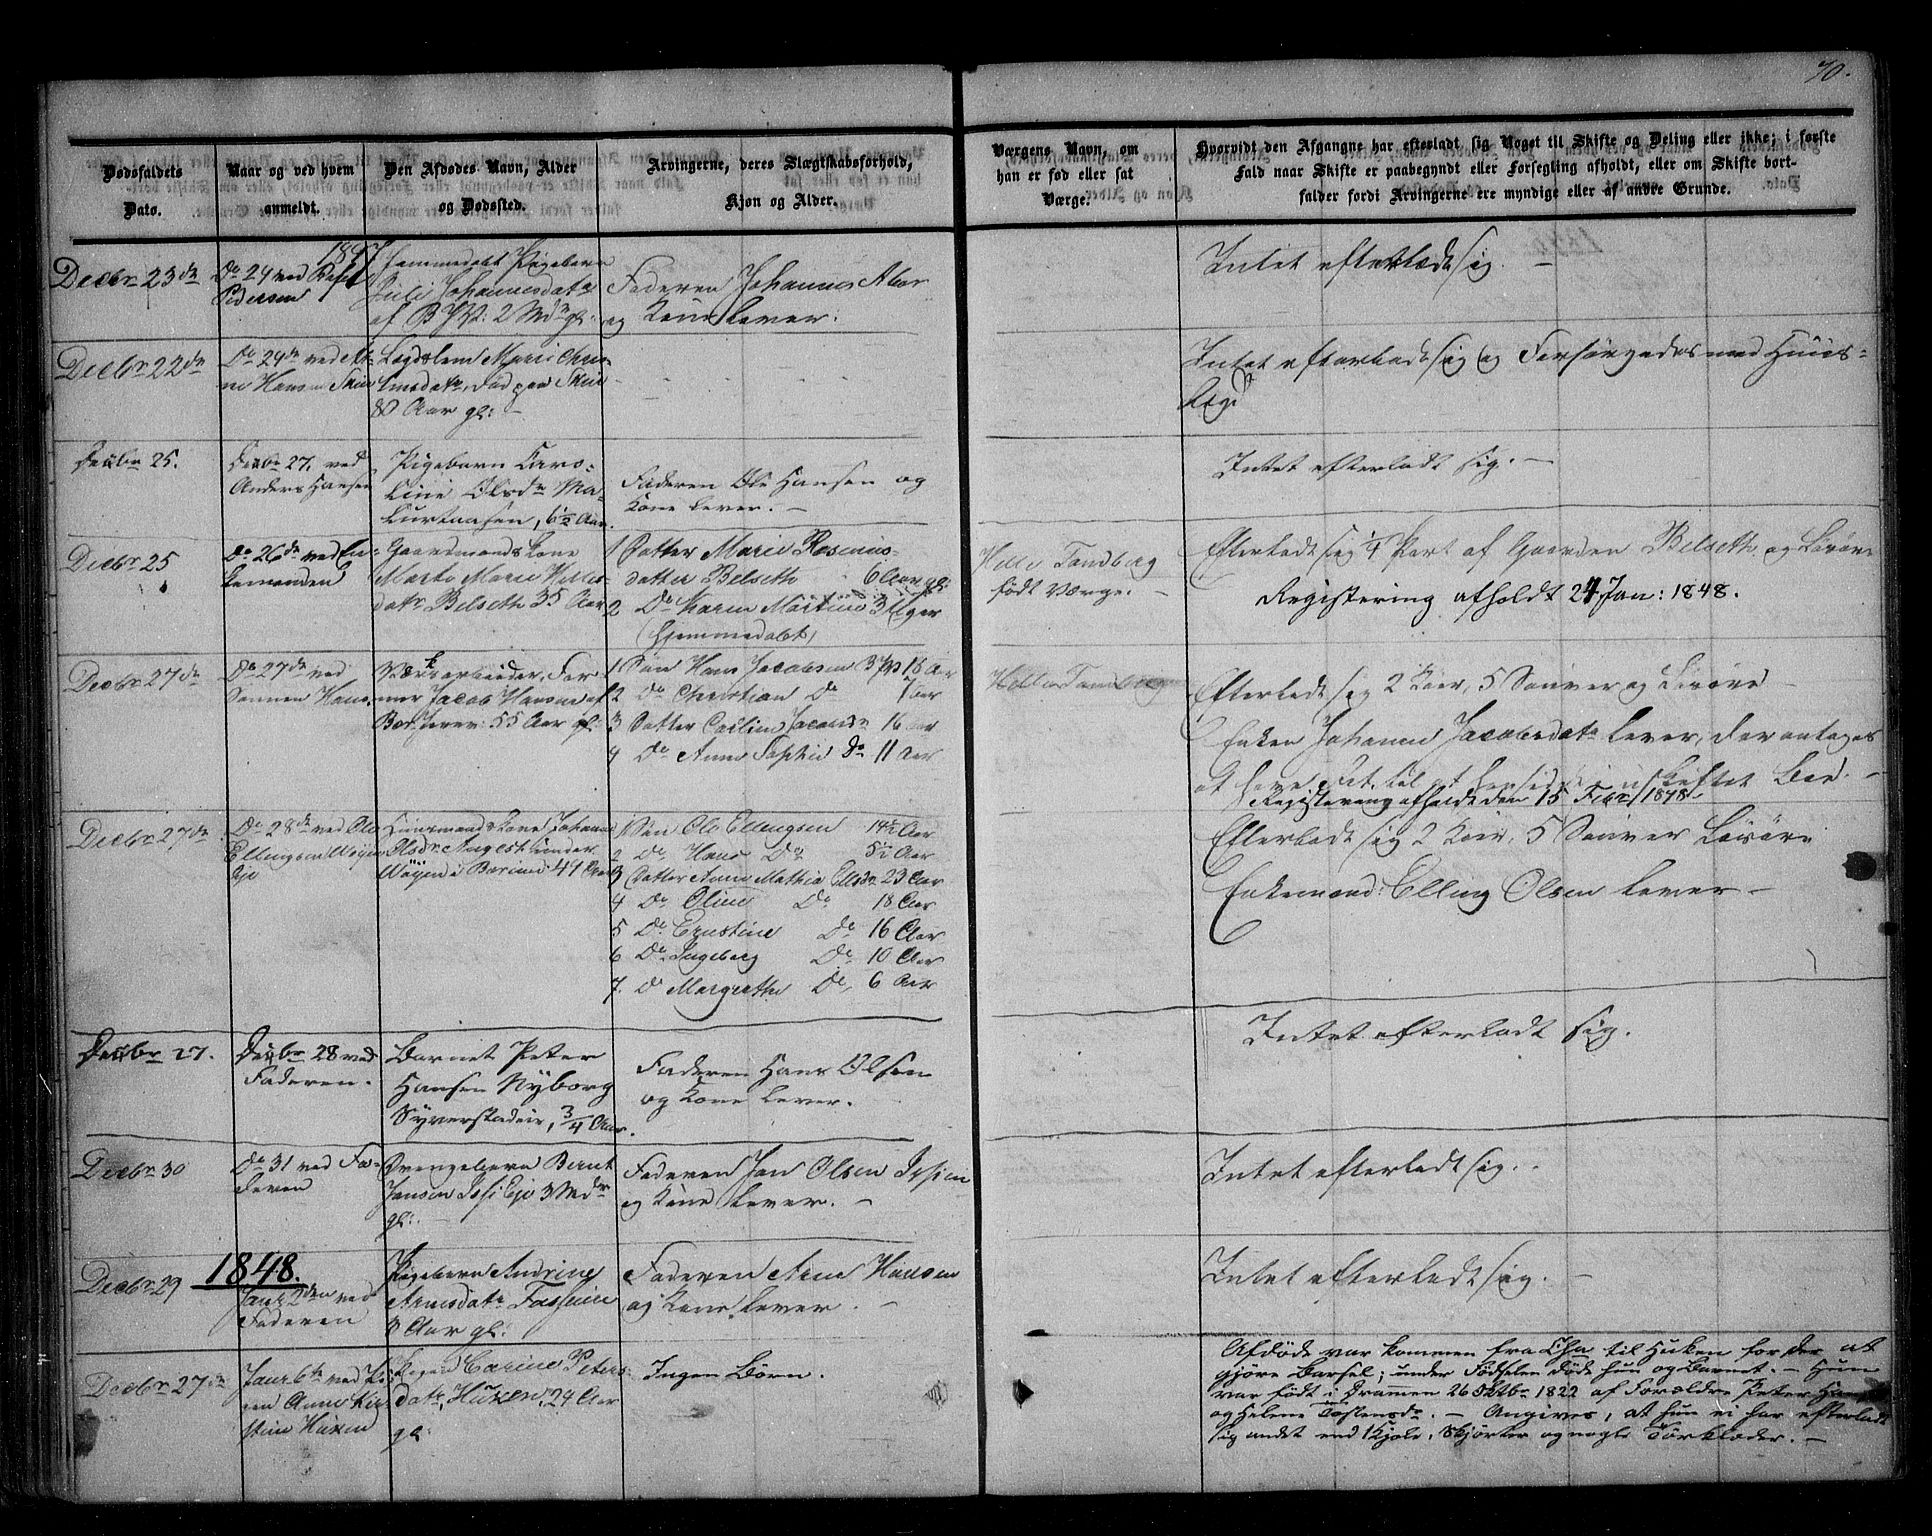 70.
Dødsfaldets
Dato.
Naar og ved hvem
anmeldt.
Den Afdødes Navn, Alder
og Dødssted.
Arvingerne, deres Slægtskabsforhold,
Kjøn og Alder.
Værgens Navn, om
han er fød eller sat
Værge.
Hvorvidt den Afgangne har efterladt sig Noget til Skifte og Deling eller ikke; i første
Fald naar Skifte er paabegyndt eller Forsegling afholdt, eller om Skifte bort-
falder fordi Arvingerne ere myndige eller af andre Grunde.
1847
Decbr 23de
Do 24 ved
Pedersen
Hjemmedøbt Pigebarn
Juli Johannesdatr
2 Mdr gl:
Faderen Johannes
og Kone lever.
Intet efterladt sig. —
Decbr 22de
Do 24de ved
Hansen
Lægdslem Marie Chris-
død paa
80 Aar gl: —
Intet efterladt sig og Forsørgedes ved Huus-
læg
Decbr 25.
Decbr 27. ved
Anders Hansen
Pigebarn Caro-
line Olsdr Ma-
6½ Aar.
Faderen Ole Hansen og
Kone lever. —
Intet efterladt sig. —
Decbr 25
Do 26de ved En-
kemanden
Gaardmands Kone
Marte Marie
datr Belseth 35 Aar
1 Datter Marie Rasmus-
datter Belseth 6 Aar gl:
2 Do Karen Martine 3 Uger
(hjemmedøbt)
Helle Tandberg
født Værge. —
Efterladt sig ¼ Part af Gaarden Belseth og Løsøre
Registering afholdt 24 Jan: 1848.
Decbr 27de
Do 27de ved
Sønnen Hans
Værkarbeider, For-
mer Jacob Hansen af
55 Aar gl:
1 Søn Hans Jacobsen 18 Aar
2 Do Christian Do Aar
3 Datter Jacobsdr 16 Aar
4 Do Anne Sophie Do 11 Aar
Helle Tandberg
Efterladt sig 2 Køer, 5 Souver og Løsøre —
Enken Johanne Jacobsdatr lever, der antages
at have Ret til at hensidde i uskiftet Boe. —
Registering afholdt den 15 Febr 1848.
Decbr 27de
Do 28de ved Ole
Ellingsen Wøyen
Eje
Huusmands Kone Johanne
Olsdr under
Wøyen i Bærum 49 Aar
1 Søn Ole Ellingsen 14½ Aar
2 Do Hans Do 5½ Aar
3 Datter Anne Mathia Ellsdr 23 Aar
4 Do Oline Do 18 Aar
5 Do Ernstine Do 16 Aar
6 Do Ingeborg Do 10 Aar
7. Do Margrethe Do, 6 Aar
Efterladt sig 2 Køer, 5 Souver Løsøre
Enkemand: Elling Olsen lever —
Decbr 27.
Decbr 28 ved
Faderen.
Barnet Peter
Hansen Nyborg
Syverstadeie, ¾ Aar.
Faderen Hans Olsen
og Kone lever.
Intet efterladt sig.
Decbr 30
Do 31 ved Fa-
deren
Drengebarn Bernt
Jansen Eje 3 Mdr
gl: —
Faderen Jan Olsen
og Kone lever. —
Intet efterladt sig. —
Decbr 29
1848.
Janr 2den ved
Faderen
Pigebarn Andrine
Arnesdatr
8 Aar gl:
Faderen Arne Hansen
og Kone lever. —
Intet efterladt sig. —
Decbr 27de
Janr 6te ved Pi-
gen Anne Kir-
stine Huken
Pigen Carine Peters-
datr, Huken, 24 Aar
gl:
Ingen Børn.
Afdøde var kommen fra Cha til Huken for der at
gjøre Barsel; under Fødselen døde hun og Barnet. — Hun
var født i Drammen 26 Oktbr 1822 af Forældre Peter
og Helene Tostensdr. — Angives, at hun ei har efterladt
sig andet end 1 Kjole, Skjorter og nogle Tørklæder. —